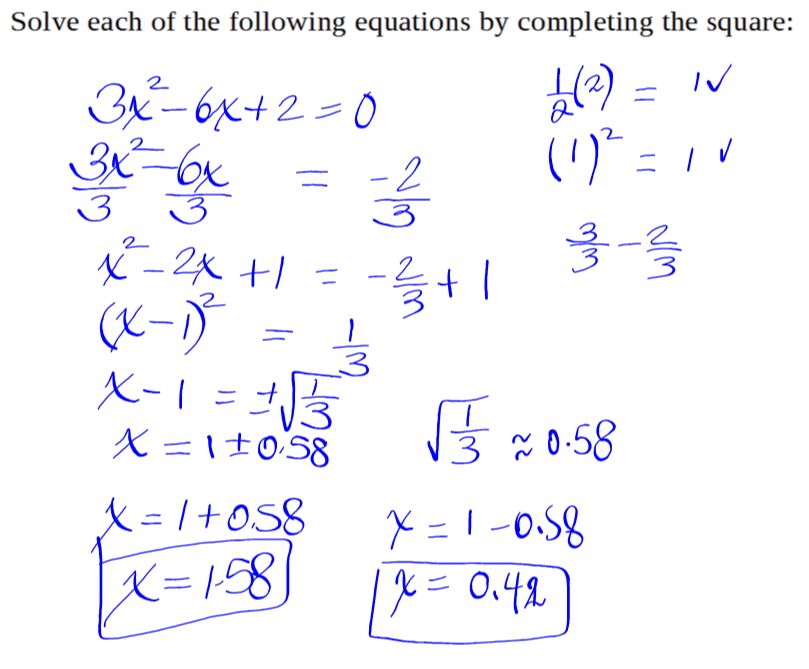 Solve each of the following equations by completing the square:
3x² - 6x + 2 = 0
1/2(2) = 1 ✓
3x²/3 - 6x/3 = -2/3
(1)² = 1 ✓
x² - 2x + 1 = -2/3 + 1
3/3 - 2/3
(x - 1)² = 1/3
x - 1 = ±√(1/3)
x = 1 ± 0.58
√(1/3) ≈ 0.58
x = 1 + 0.58
x = 1 - 0.58
x = 1.58
x = 0.42